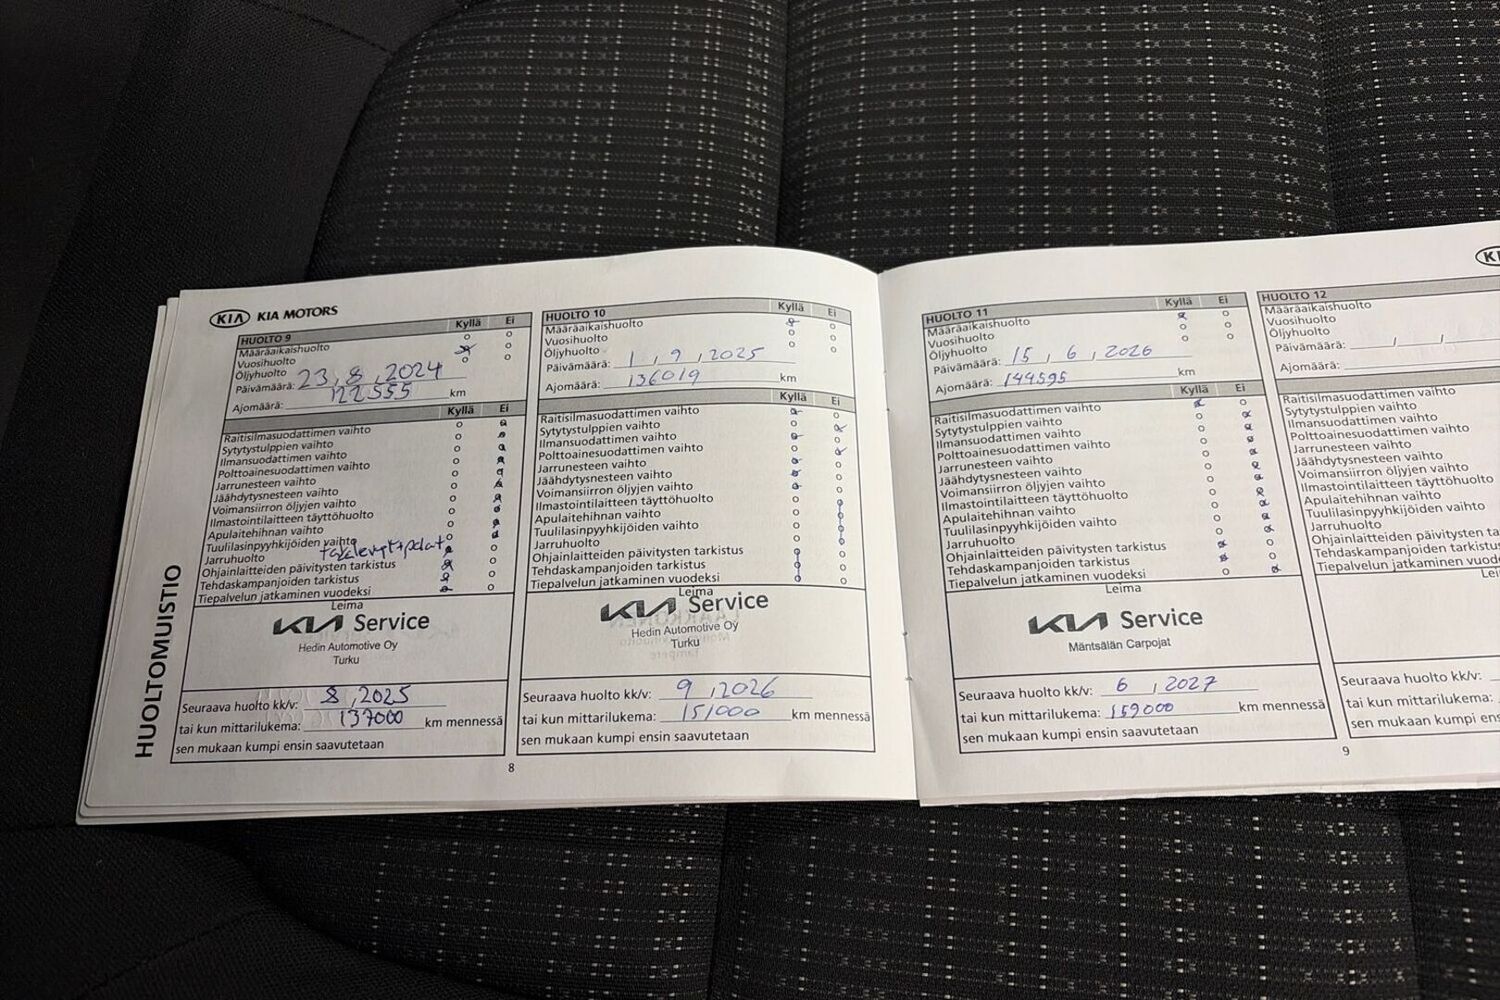 KIA KIA MOTORS
HUOLTOMUISTIO
HUOLTO 9 Kyllä Ei
Määräaikaishuolto
Vuosihuolto
Öljyhuolto
Päivämäärä: 23, 8, 2024
Ajomäärä: 122555 km
Kyllä Ei
Raitisilmasuodattimen vaihto
Sytytystulppien vaihto
Ilmansuodattimen vaihto
Polttoainesuodattimen vaihto
Jarrunesteen vaihto
Jäähdytysnesteen vaihto
Voimansiirron öljyjen vaihto
Ilmastointilaitteen täyttöhuolto
Apulaitehihnan vaihto
Tuulilasinpyyhkijöiden vaihto
Jarruhuolto
Ohjainlaitteiden päivitysten tarkistus
Tehdaskampanjoiden tarkistus
Tiepalvelun jatkaminen vuodeksi
Leima
KIA Service
Hedin Automotive Oy
Turku
Seuraava huolto kk/v: 8, 2025
tai kun mittarilukema: 137000 km mennessä
sen mukaan kumpi ensin saavutetaan
HUOLTO 10 Kyllä Ei
Määräaikaishuolto
Vuosihuolto
Öljyhuolto
Päivämäärä: 1, 9, 2025
Ajomäärä: 136019 km
Kyllä Ei
Raitisilmasuodattimen vaihto
Sytytystulppien vaihto
Ilmansuodattimen vaihto
Polttoainesuodattimen vaihto
Jarrunesteen vaihto
Jäähdytysnesteen vaihto
Voimansiirron öljyjen vaihto
Ilmastointilaitteen täyttöhuolto
Apulaitehihnan vaihto
Tuulilasinpyyhkijöiden vaihto
Jarruhuolto
Ohjainlaitteiden päivitysten tarkistus
Tehdaskampanjoiden tarkistus
Tiepalvelun jatkaminen vuodeksi
Leima
KIA Service
Hedin Automotive Oy
Turku
Seuraava huolto kk/v: 9, 2026
tai kun mittarilukema: 151000 km mennessä
sen mukaan kumpi ensin saavutetaan
8
HUOLTO 11 Kyllä Ei
Määräaikaishuolto
Vuosihuolto
Öljyhuolto
Päivämäärä: 15, 6, 2026
Ajomäärä: 144595 km
Kyllä Ei
Raitisilmasuodattimen vaihto
Sytytystulppien vaihto
Ilmansuodattimen vaihto
Polttoainesuodattimen vaihto
Jarrunesteen vaihto
Jäähdytysnesteen vaihto
Voimansiirron öljyjen vaihto
Ilmastointilaitteen täyttöhuolto
Apulaitehihnan vaihto
Tuulilasinpyyhkijöiden vaihto
Jarruhuolto
Ohjainlaitteiden päivitysten tarkistus
Tehdaskampanjoiden tarkistus
Tiepalvelun jatkaminen vuodeksi
Leima
KIA Service
Mäntsälän Carpojat
Seuraava huolto kk/v: 6, 2027
tai kun mittarilukema: 159000 km mennessä
sen mukaan kumpi ensin saavutetaan
HUOLTO 12
Määräaikaishuolto
Vuosihuolto
Öljyhuolto
Päivämäärä:
Ajomäärä:
Raitisilmasuodattimen vaihto
Sytytystulppien vaihto
Ilmansuodattimen vaihto
Polttoainesuodattimen vaihto
Jarrunesteen vaihto
Jäähdytysnesteen vaihto
Voimansiirron öljyjen vaihto
Ilmastointilaitteen täyttöhuolto
Apulaitehihnan vaihto
Tuulilasinpyyhkijöiden vaihto
Jarruhuolto
Ohjainlaitteiden päivitysten ta
Tehdaskampanjoiden tarkistus
Tiepalvelun jatkaminen vuode
Seuraava huolto kk/v:
tai kun mittarilukema:
sen mukaan kumpi ens
9